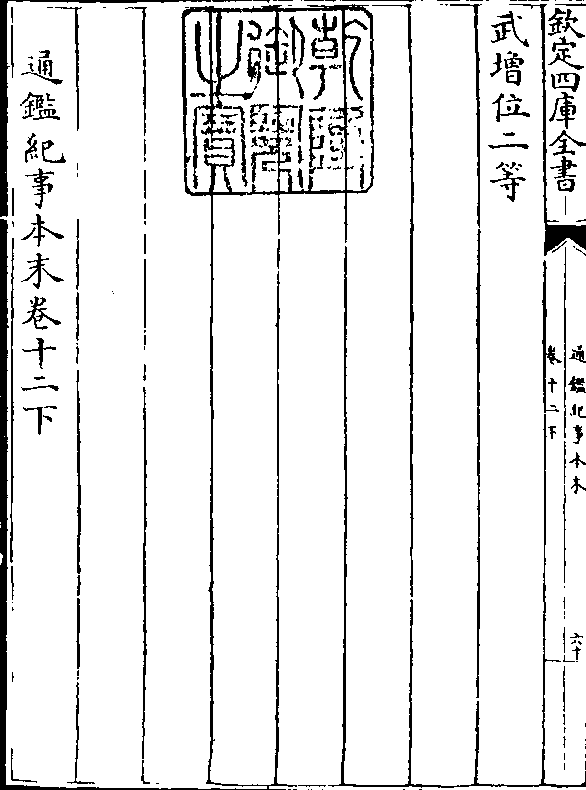 欽定四庫全書
通鑑紀事本末
卷十二下
六十
武增位二等
乾隆御覽之寶
通鑑紀事本末卷十二下